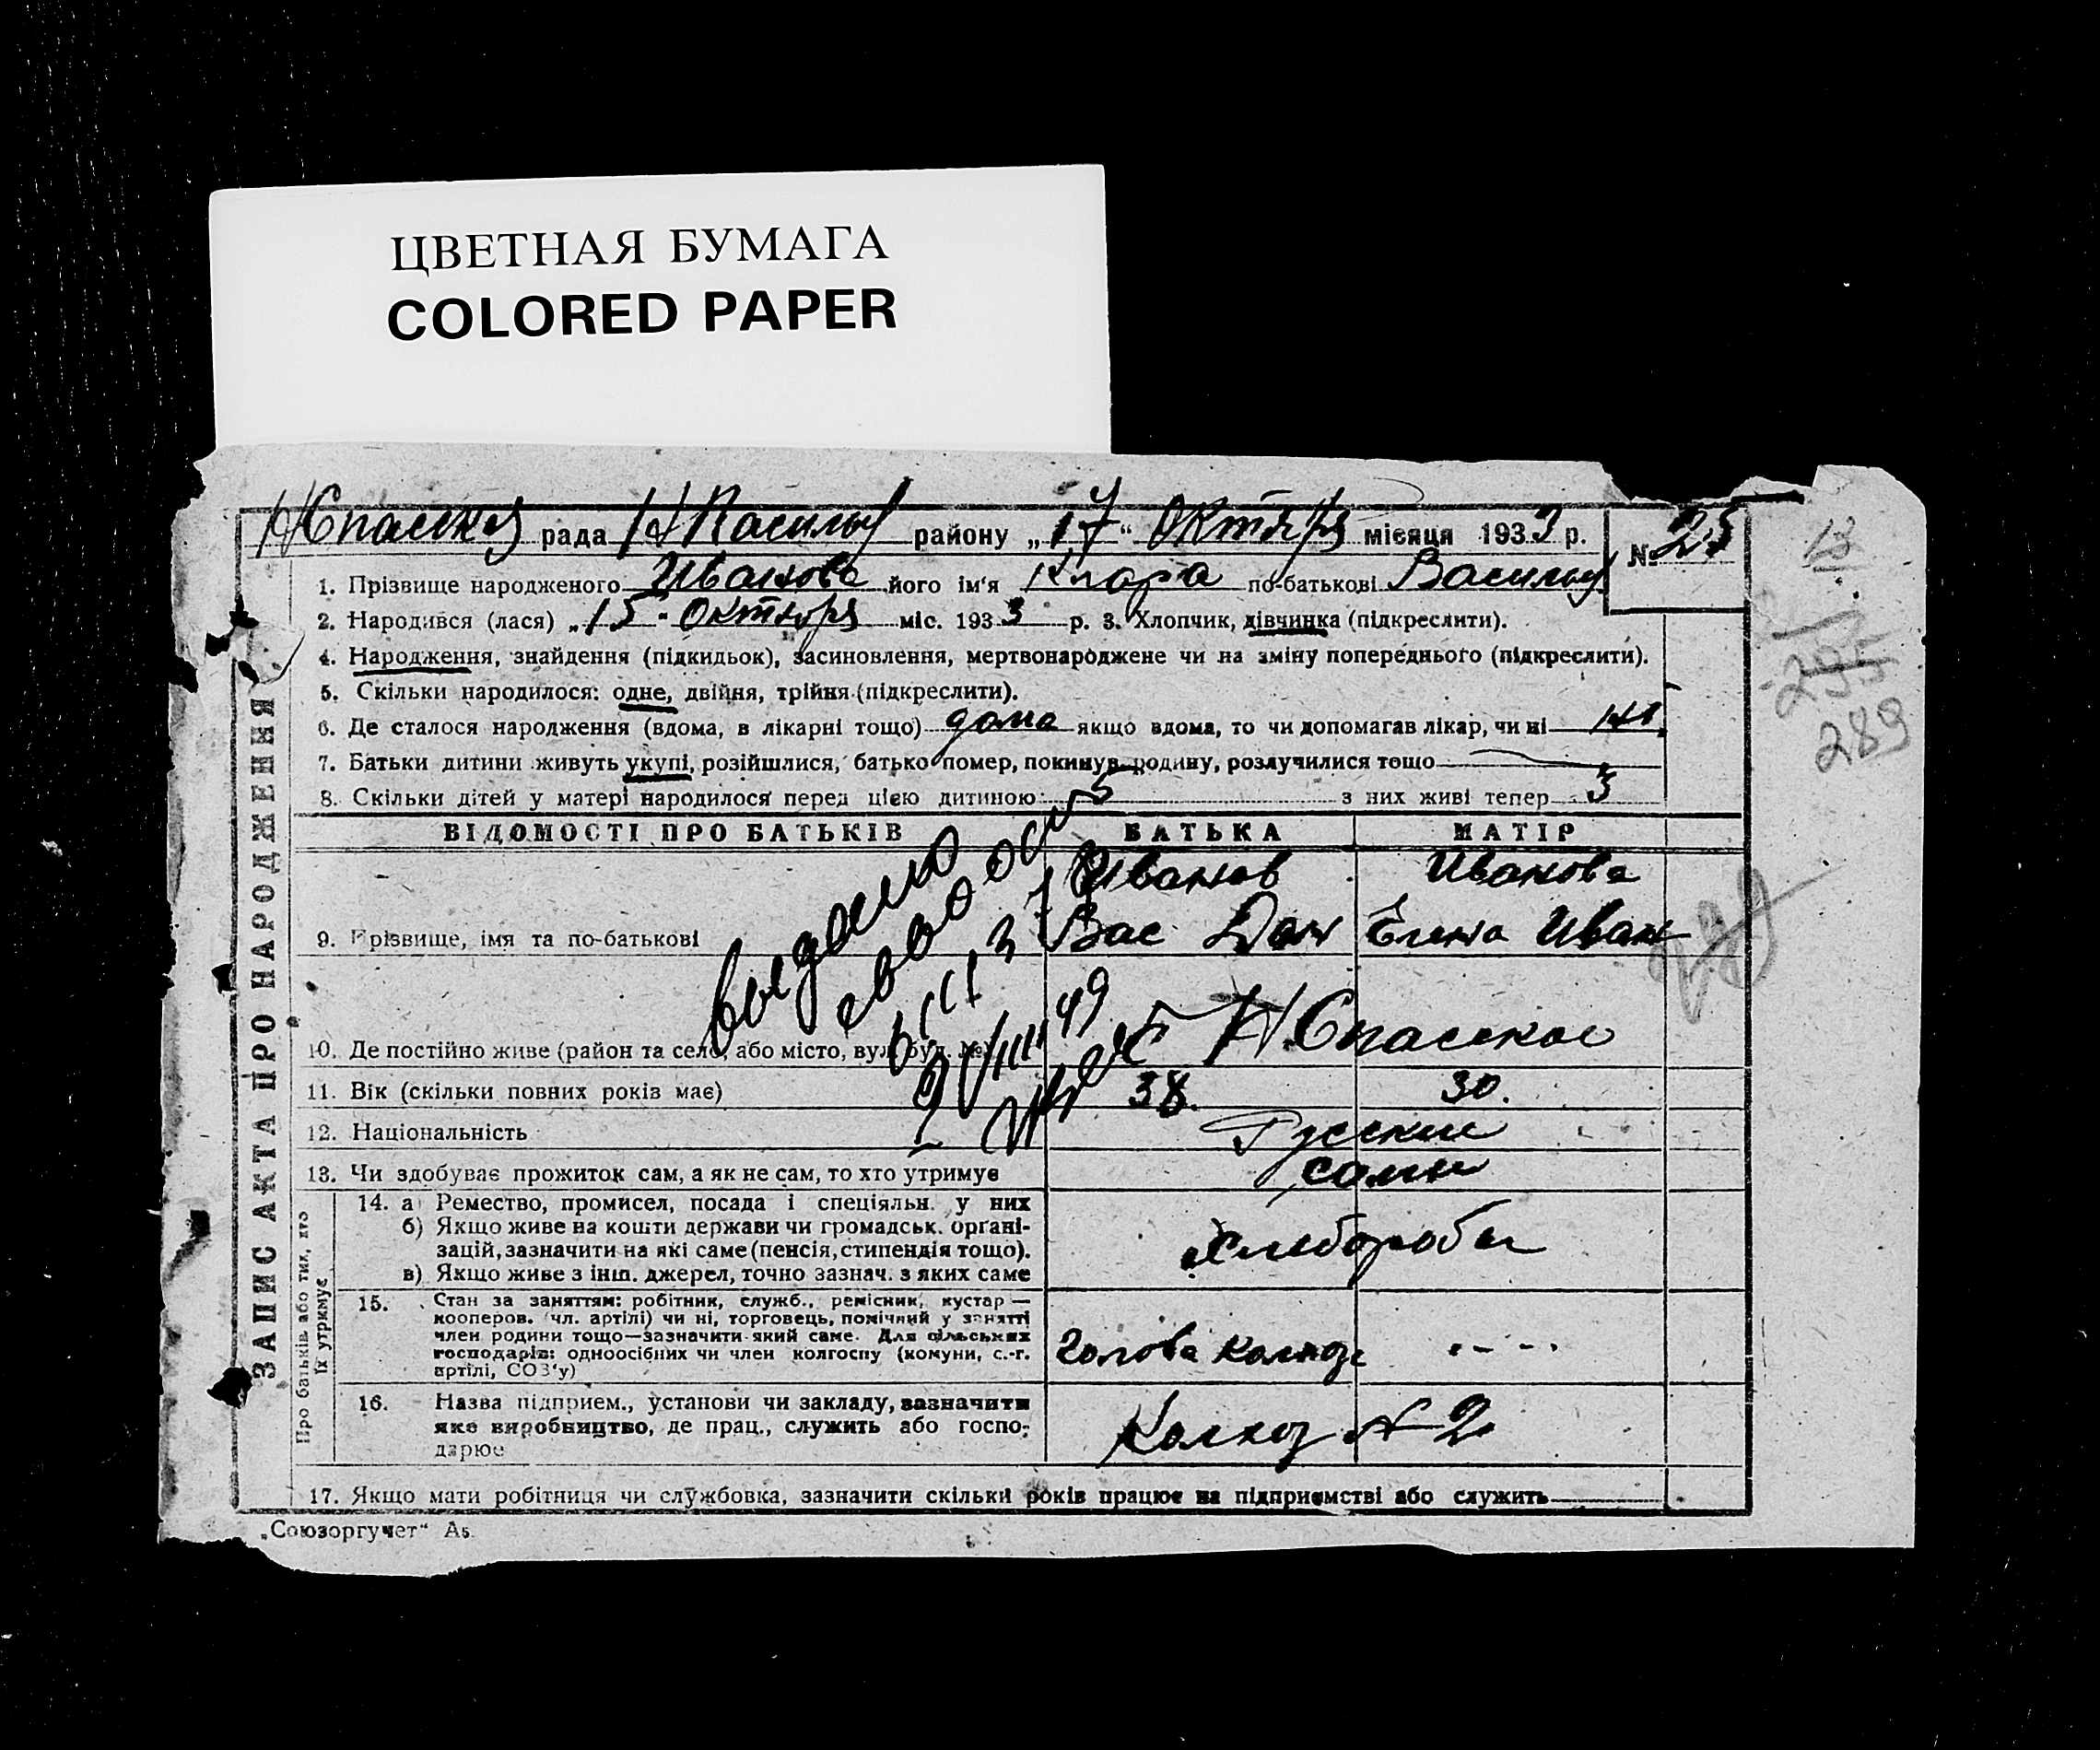 ЦВЕТНАЯ БУМАГА
COLORED PAPER
НСпаской рада Н Василь району „17“ Октября місяця 1933 р. № 25
13
1. Прізвище народженого Иванова його ім'я Клара по-батькові Василь
2. Народився (лася) „15" Октября міс. 1933 р. 3. Хлопчик, дівчинка (підкреслити).
4. Народження, знайдення (підкидьок), засиновлення, мертвонароджене чи на зміну попереднього (підкреслити).
5. Скільки народилося: одне, двійня, трійня (підкреслити).
295
6. Де сталося народження (вдома, в лікарні тощо) дома якщо вдома, то чи допомагав лікар, чи ні
289
7. Батьки дитини живуть укупі, розійшлися, батько помер, покинув родину, розлучилися тощо
8. Скільки дітей у матері народилося перед цією дитиною: 5 з них живі тепер 3
ЗАПИС АКТА ПРО НАРОДЖЕННЯ
ВІДОМОСТІ ПРО БАТЬКІВ БАТЬКА МАТІР
Иванов Иванова
9. Прізвище, імя та по-батькові Вас Дан Елена Иван
выдано
49
10. Де постійно живе (район та село, або місто, вул. буд. №) с Н Спаское
11. Вік (скільки повних років має) 38. 30.
12. Національність Русские
13. Чи здобуває прожиток сам, а як не сам, то хто утримує сами
Про батьків або тих, хто їх утримує
14. а) Ремество, промисел, посада і спеціяльн. у них
б) Якщо живе на кошти держави чи громадськ. органі-
зацій, зазначити на які саме (пенсія, стипендія тощо).
в) Якщо живе з інш. джерел, точно зазнач. з яких саме
Хлебороби
15. Стан за заняттям: робітник, служб., ремісник, кустар —
кооперов. (чл. артілі) чи ні, торговець, помічний у занятті
член родини тощо—зазначити який саме. Для сільських
господарів: одноосібних чи член колгоспу (комуни, с.-г.
артілі, СОЗ'у)
Голова колхоз
16. Назва підприєм., установи чи закладу, зазначити
яке виробництво, де прац., служить або госпо-
дарює
Колхоз № 2
17. Якщо мати робітниця чи службовка, зазначити скільки років працює на підприємстві або служить
„Союзоргучет“ А5.